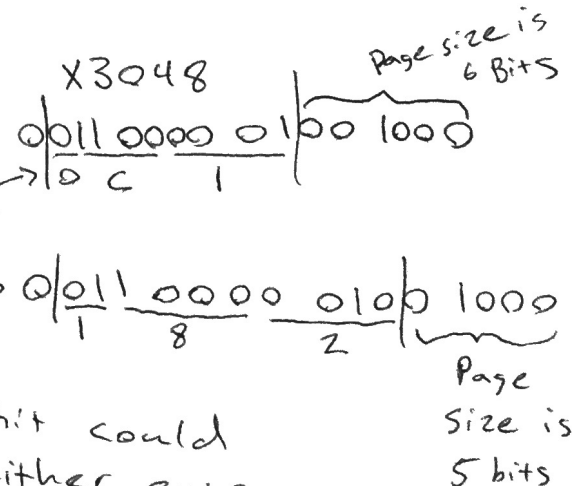 x3048
Page size is
6 Bits
0|0011 0000 01|00 1000
0 C 1
0|011 0000 010|0 1000
1 8 2
Page
size is
5 bits
could